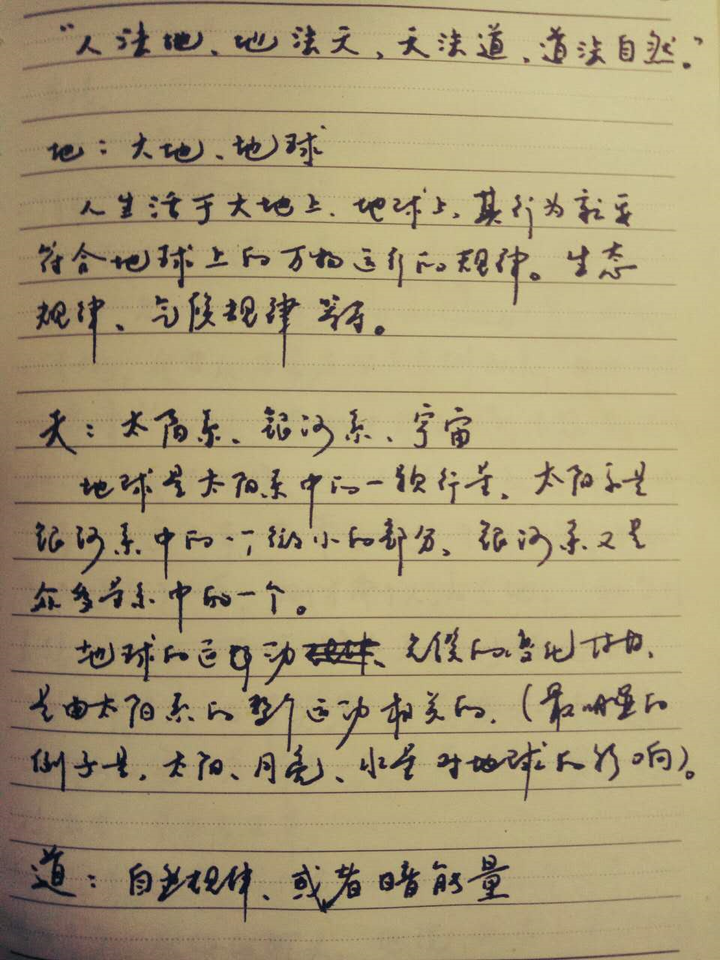 “人法地、地法天、天法道、道法自然。”
地：大地、地球
人生活于大地上、地球上、其行为就要
符合地球上的万物运行的规律。生态
规律、气候规律等等。
天：太阳系、银河系、宇宙
地球是太阳系中的一颗行星、太阳系是
银河系中的一个微小的部分、银河系又是
众多星系中的一个。
地球的运动、气候的变化
是由太阳系的整个运动相关的、（最明显的
例子是、太阳、月亮、水星对地球的影响）。
道：自然规律、或者暗能量